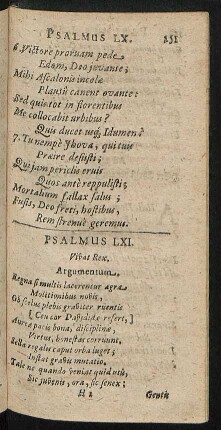 PSALMUS LX. 251
6. Victore proruam pede
Edom, Deo juvante;
Mihi Ascalonis incolæ
Plausu canent ovante:
Sed quis tot in florentibus
Me collocabit urbibus?
Quis ducet usq; Idumen?
7. Tu nempè Jhova, qui tuis
Præire desiisti;
Qui jam periclis eruis
Quos antè reppulisti;
Mortalium fallax salus;
Fusis, Deo freti, hostibus,
Rem strenuè geremus.
PSALMUS LXI.
Vivat Rex.
Argumentum.
Regna si multis lacerentur agra
Molitionibus nobis,
Ob scelus plebis graviter ruentis
[Ceu cor Davididæ refert,]
Aurea pacis bona, disciplinæ,
Virtus, honestas corruunt.
Sella regalis caput orba luget;
Instat grabis mutatio.
Tale ne quando veniat quid usu,
Sic jubenis, ora, sic senex;
H 2 Gentis